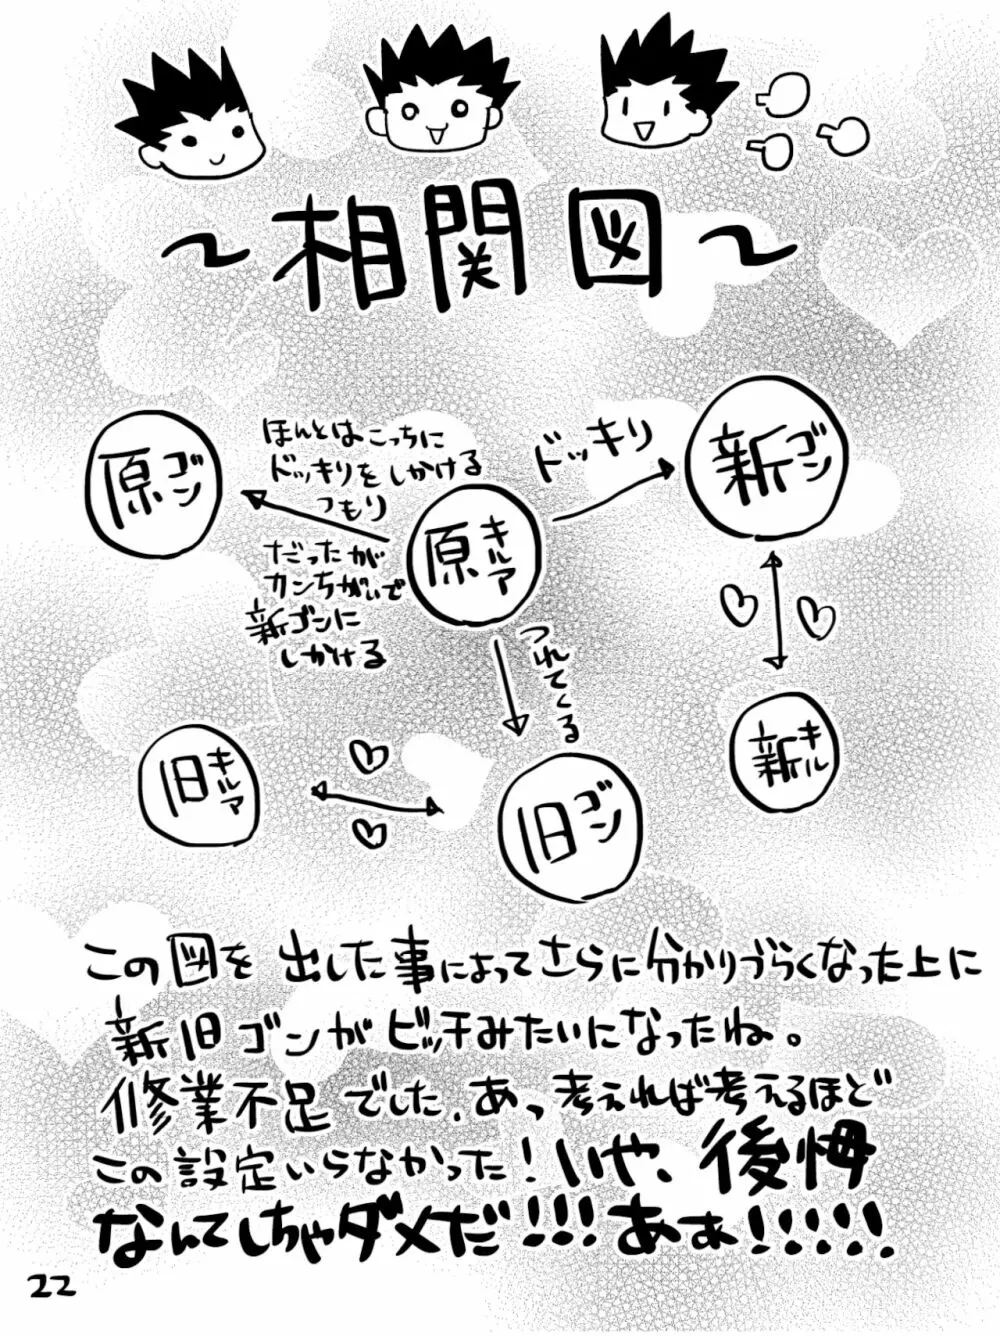 ～相関図～
原ゴン
ほんとはこっちに
ドッキリをしかける
つもり
だったが
カンちがいで
新ゴンに
しかける
原キルア
ドッキリ
新ゴン
つれてくる
旧キルア
旧ゴン
新キル
この図を出した事によってさらに分かりづらくなった上に
新旧ゴンがビッチみたいになったね。
修業不足でした.あっ考えれば考えるほど
この設定いらなかった!いや、後悔
なんてしちゃダメだ!!!あぁ!!!!!
22